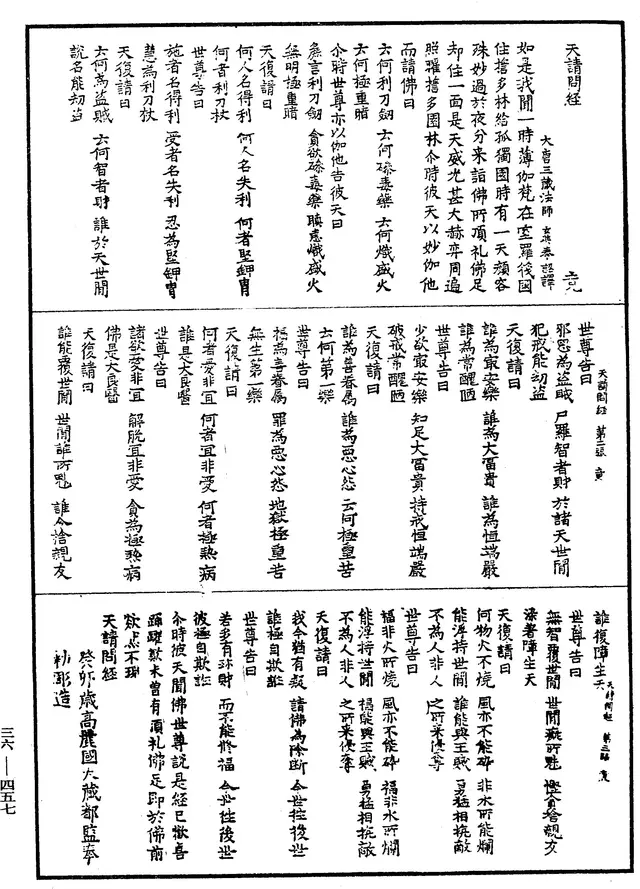 天請問經
大唐三藏法師玄奘奉詔譯 竟
如是我聞一時薄伽梵在室羅筏國
住誓多林給孤獨園時有一天顏容
殊妙過於夜分來詣佛所頂礼佛足
却住一面是天威光甚大赫弈周遍
照曜誓多園林尒時彼天以妙伽他
而請佛曰
云何利刀劒 云何磣毒藥 云何熾盛火
云何極重暗
尒時世尊亦以伽他告彼天曰
麁言利刀劒 貪欲磣毒藥 瞋恚熾盛火
無明極重暗
天復請曰
何人名得利 何人名失利 何者堅鉀冑
何者利刀杖
世尊告曰
施者名得利 受者名失利 忍為堅鉀冑
慧為利刀杖
天復請曰
云何為盜賊 云何智者財 誰於天世間
說名能劫盜
天請問經 第二張 竟
世尊告曰
邪思為盜賊 尸羅智者財 於諸天世間
犯戒能劫盜
天復請曰
誰為最安樂 誰為大富貴 誰為恒端嚴
誰為常醜陋
世尊告曰
少欲最安樂 知足大富貴 持戒恒端嚴
破戒常醜陋
天復請曰
誰為善眷属 誰為惡心怨 云何極重苦
云何第一樂
世尊告曰
福為善眷属 罪為惡心怨 地獄極重苦
無生第一樂
天復請曰
何者愛非宜 何者宜非愛 何者極熱病
誰是大良醫
世尊告曰
諸欲愛非宜 解脫宜非愛 貪為極熱病
佛是大良醫
天復請曰
誰能覆世間 世間誰所魅 誰令捨親友
天請問經 第三張 竟
誰復障生天
世尊告曰
無智覆世間 世間癡所魅 慳貪捨親友
染著障生天
天復請曰
何物火不燒 風亦不能碎 非水所能爛
能浮持世間 誰能與王賊 勇猛相抗敵
不為人非人 之所來侵奪
世尊告曰
福非火所燒 風亦不能碎 福非水所爛
能浮持世間 福能與王賊 勇猛相抗敵
不為人非人 之所來侵奪
天復請曰
我今猶有疑 請佛為除斷 今世往後世
誰極自欺誑
世尊告曰
若多有珎財 而不能修福 今世往後世
彼極自欺誑
尒時彼天聞佛世尊說是經已歡喜
踊躍歎未曾有頂礼佛足即於佛前
欻然不現
天請問經
癸卯歲高麗國大藏都監奉
勅彫造
三六—四五七